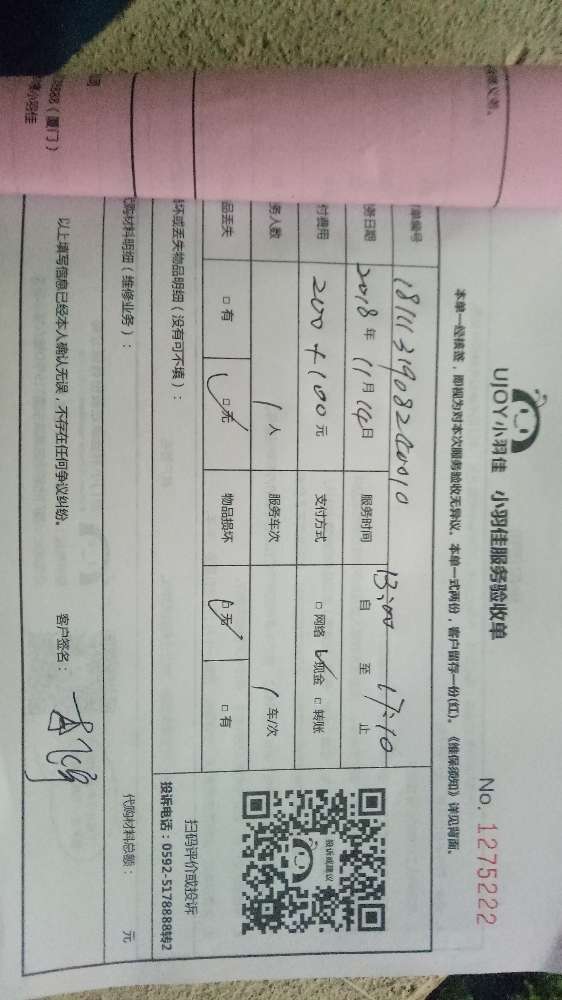 UJOY小羽佳 小羽佳服务验收单
No. 1275222
本单一经核签，即视为对本次服务验收无异议。本单一式两份，客户留存一份(红)。《维保须知》详见背面。
单编号
务日期 2018年 11月 14日 服务时间 13:00 自 至 17:10 止
付费用 200+100元 支付方式 □网络 □现金 □转账
务人数 1人 服务车次 1车/次
品丢失 □有 □无 物品损坏 □无 □有
坏或丢失物品明细（没有可不填）：
扫码评价或投诉
投诉建议
投诉电话：0592-5178888转2
代购材料明细（维修业务）：
代购材料总额： 元
以上填写信息已经本人确认无误，不存在任何争议纠纷。
客户签名：
（厦门）
小羽佳